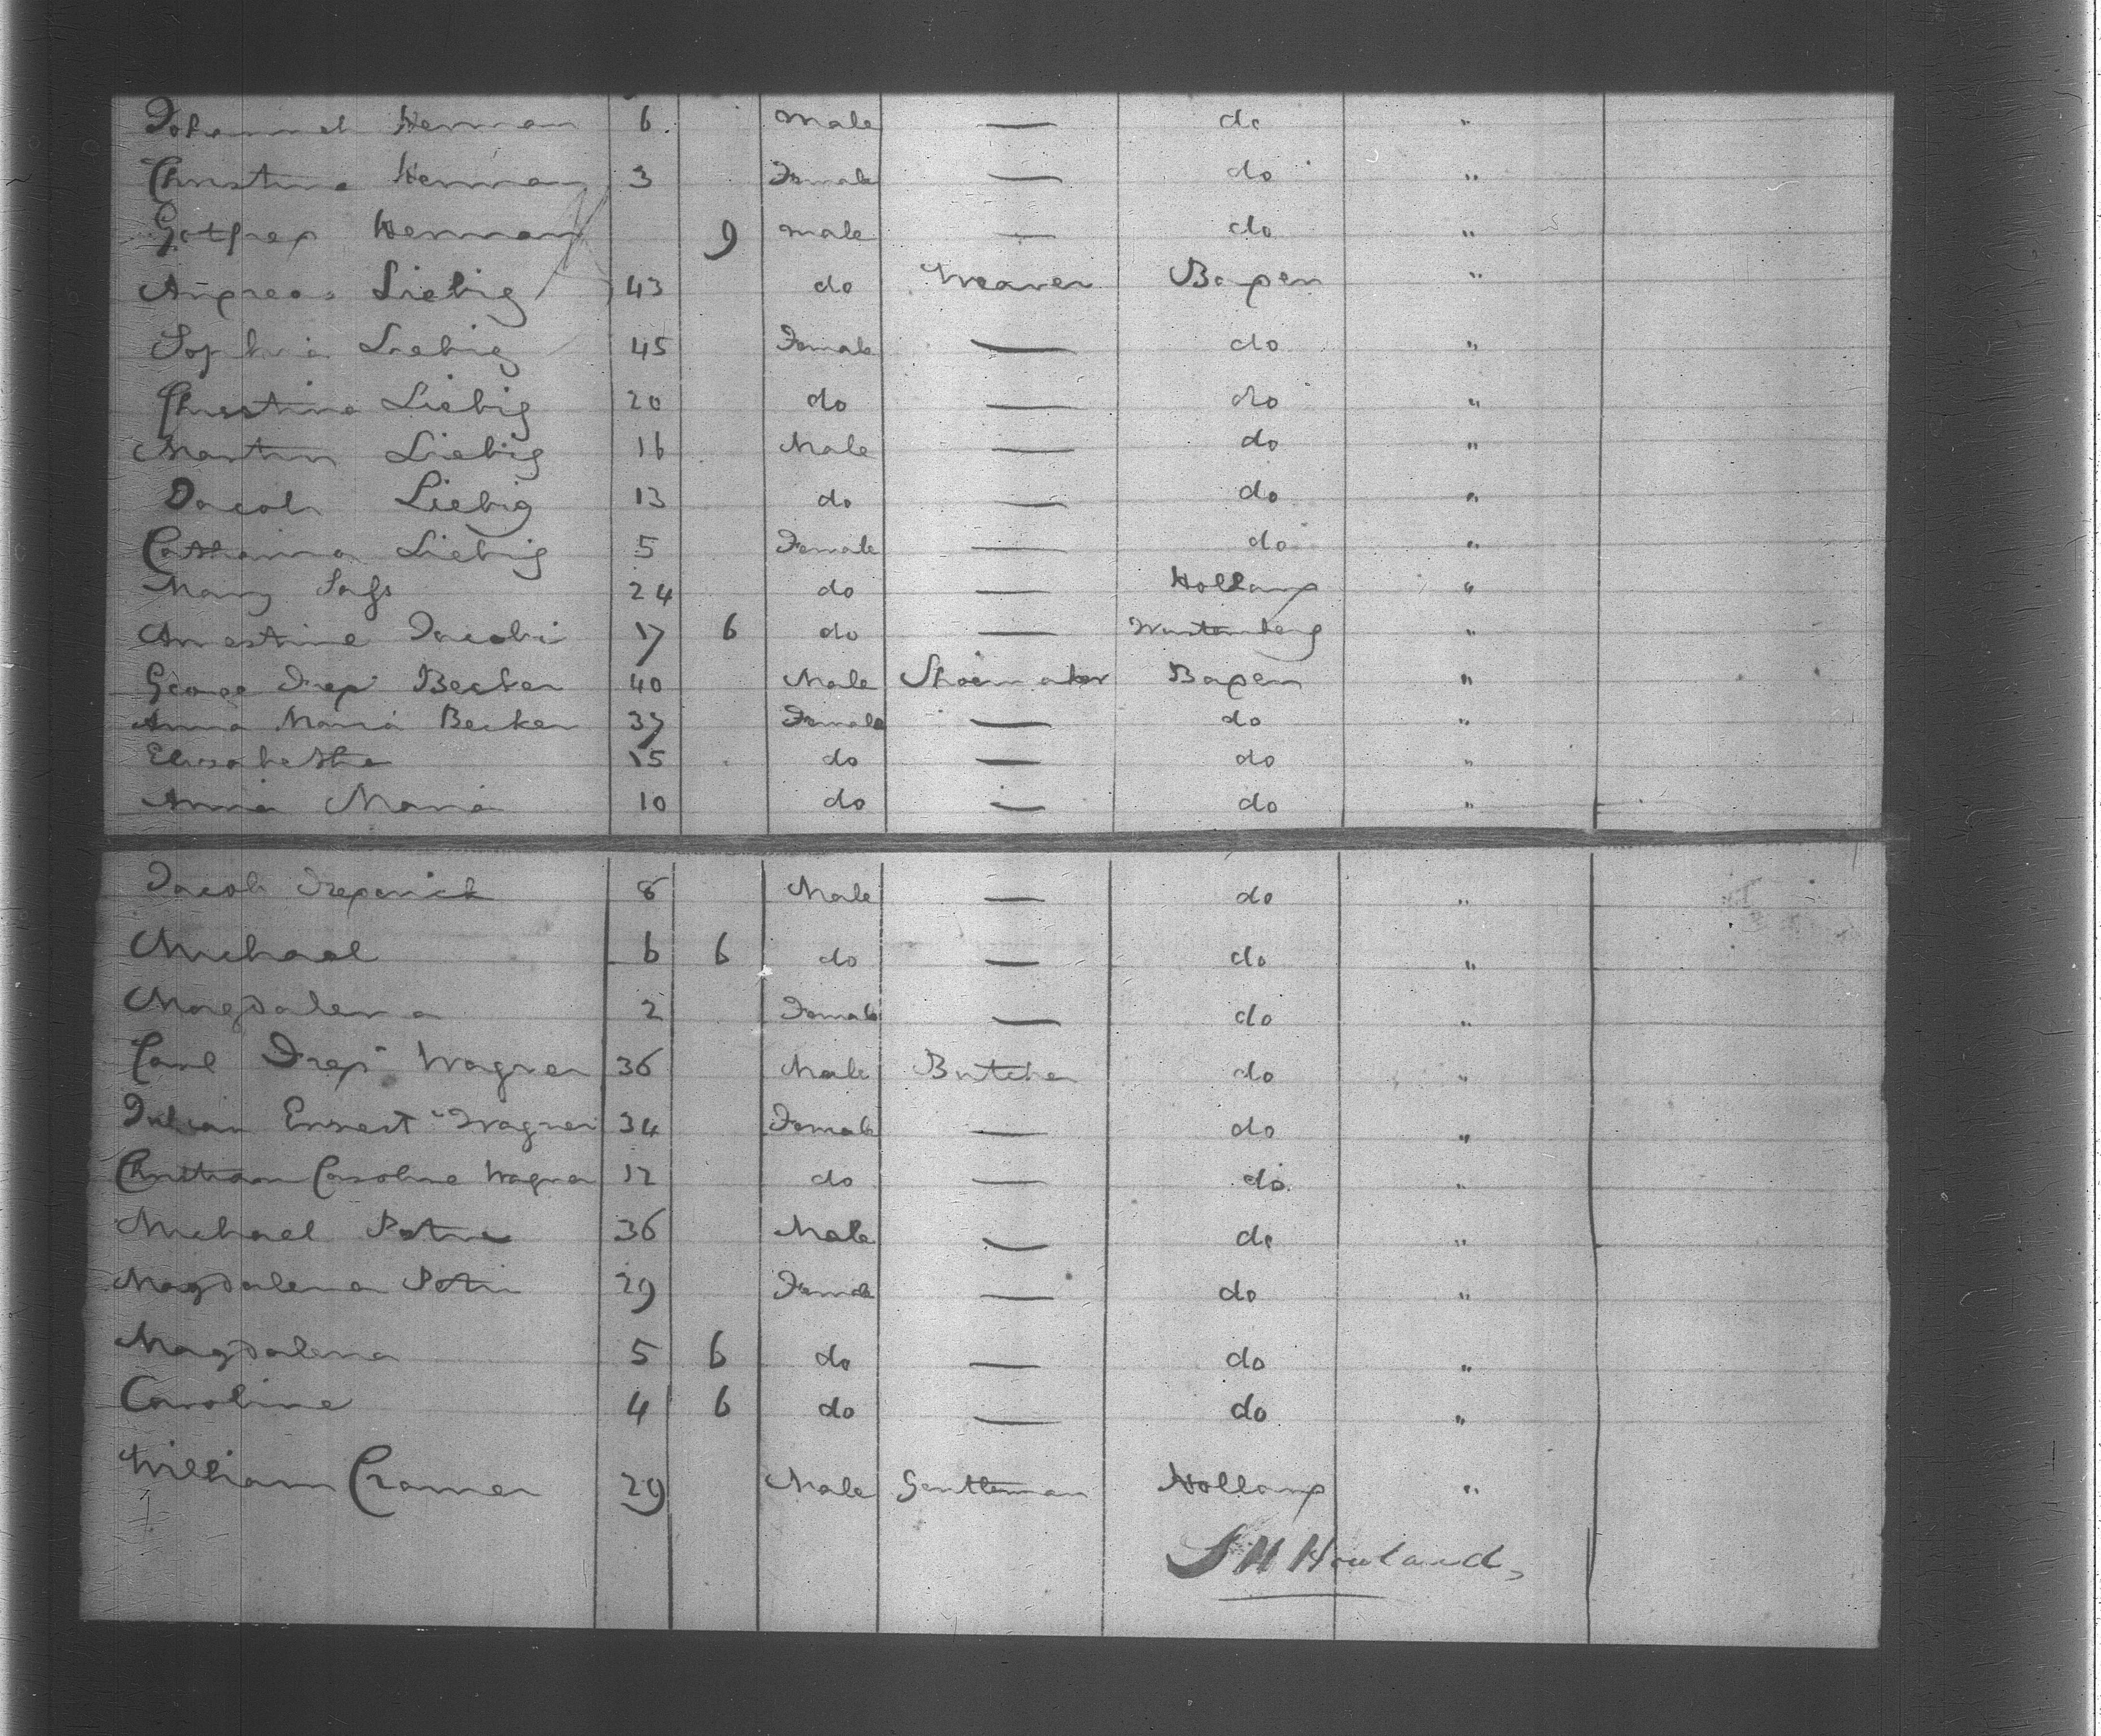 Johannes Herman 6 Male — do "
Christina Herman 3 Female — do "
Gotfred Herman 9 male — do "
Andreas Liebig 43 do Weaver Baden "
Sophia Liebig 45 Female — do "
Christina Liebig 20 do — do "
Martin Liebig 16 Male — do "
Jacob Liebig 13 do — do "
Catharina Liebig 5 Female — do "
Mary 24 do — Holland "
Jacobi 17 6 do — Wurtemberg "
George Fred Becker 40 Male Shoemaker Baden "
Anna Maria Becker 37 Female — do "
Elisabetha 15 do — do "
Anna Maria 10 do — do "
Jacob Frederick 8 Male — do "
Michael 6 6 do — do "
Magdalena 2 Female — do "
Carl Fred Wagner 36 Male Butcher do "
Ernest Wagner 34 Female — do "
Christian Caroline Wagner 12 do — do "
Michael Petri 36 Male — do "
Magdalena Petri 29 Female — do "
Magdalena 5 6 do — do "
Caroline 4 6 do — do "
William Cramer 29 Male Gentleman Holland "
S H Howland